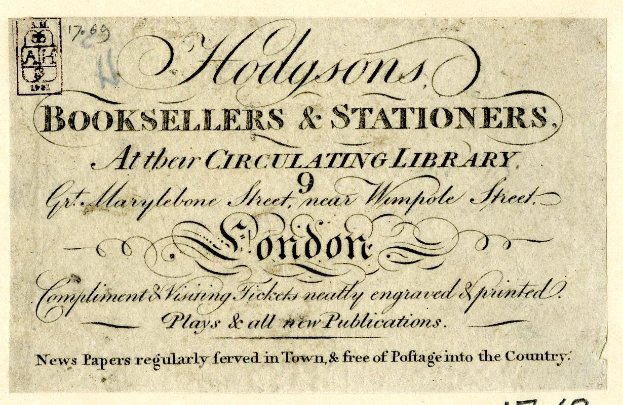 A.H.
17.69
A H
1941
Hodgsons,
BOOKSELLERS & STATIONERS,
At their CIRCULATING LIBRARY,
9
Grt. Marylebone Street, near Wimpole Street.
London.
Compliment & Visiting Tickets neatly engraved & printed.
Plays & all new Publications.
News Papers regularly ſerved in Town, & free of Poſtage into the Country.